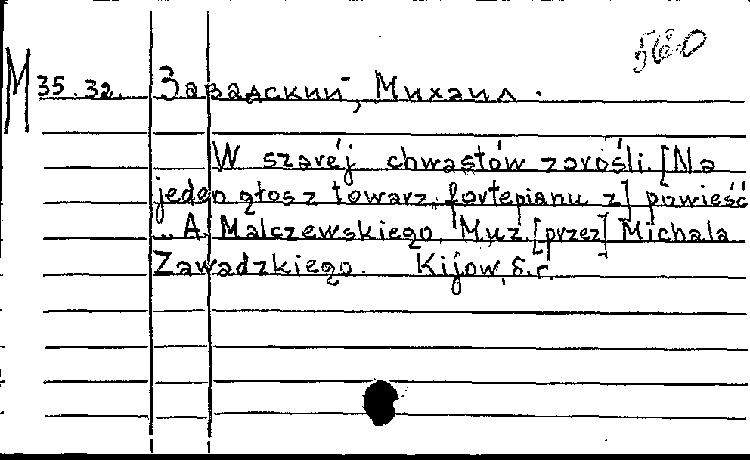 560
M 35.32. Завадский, Михаил.
W szaréj chwastów zarośli. [Na
jeden głos z towarz. fortepianu z] powieść
.. A. Malczewskiego. Muz. [przez] Michala
Zawadzkiego. Kijow, s.r.